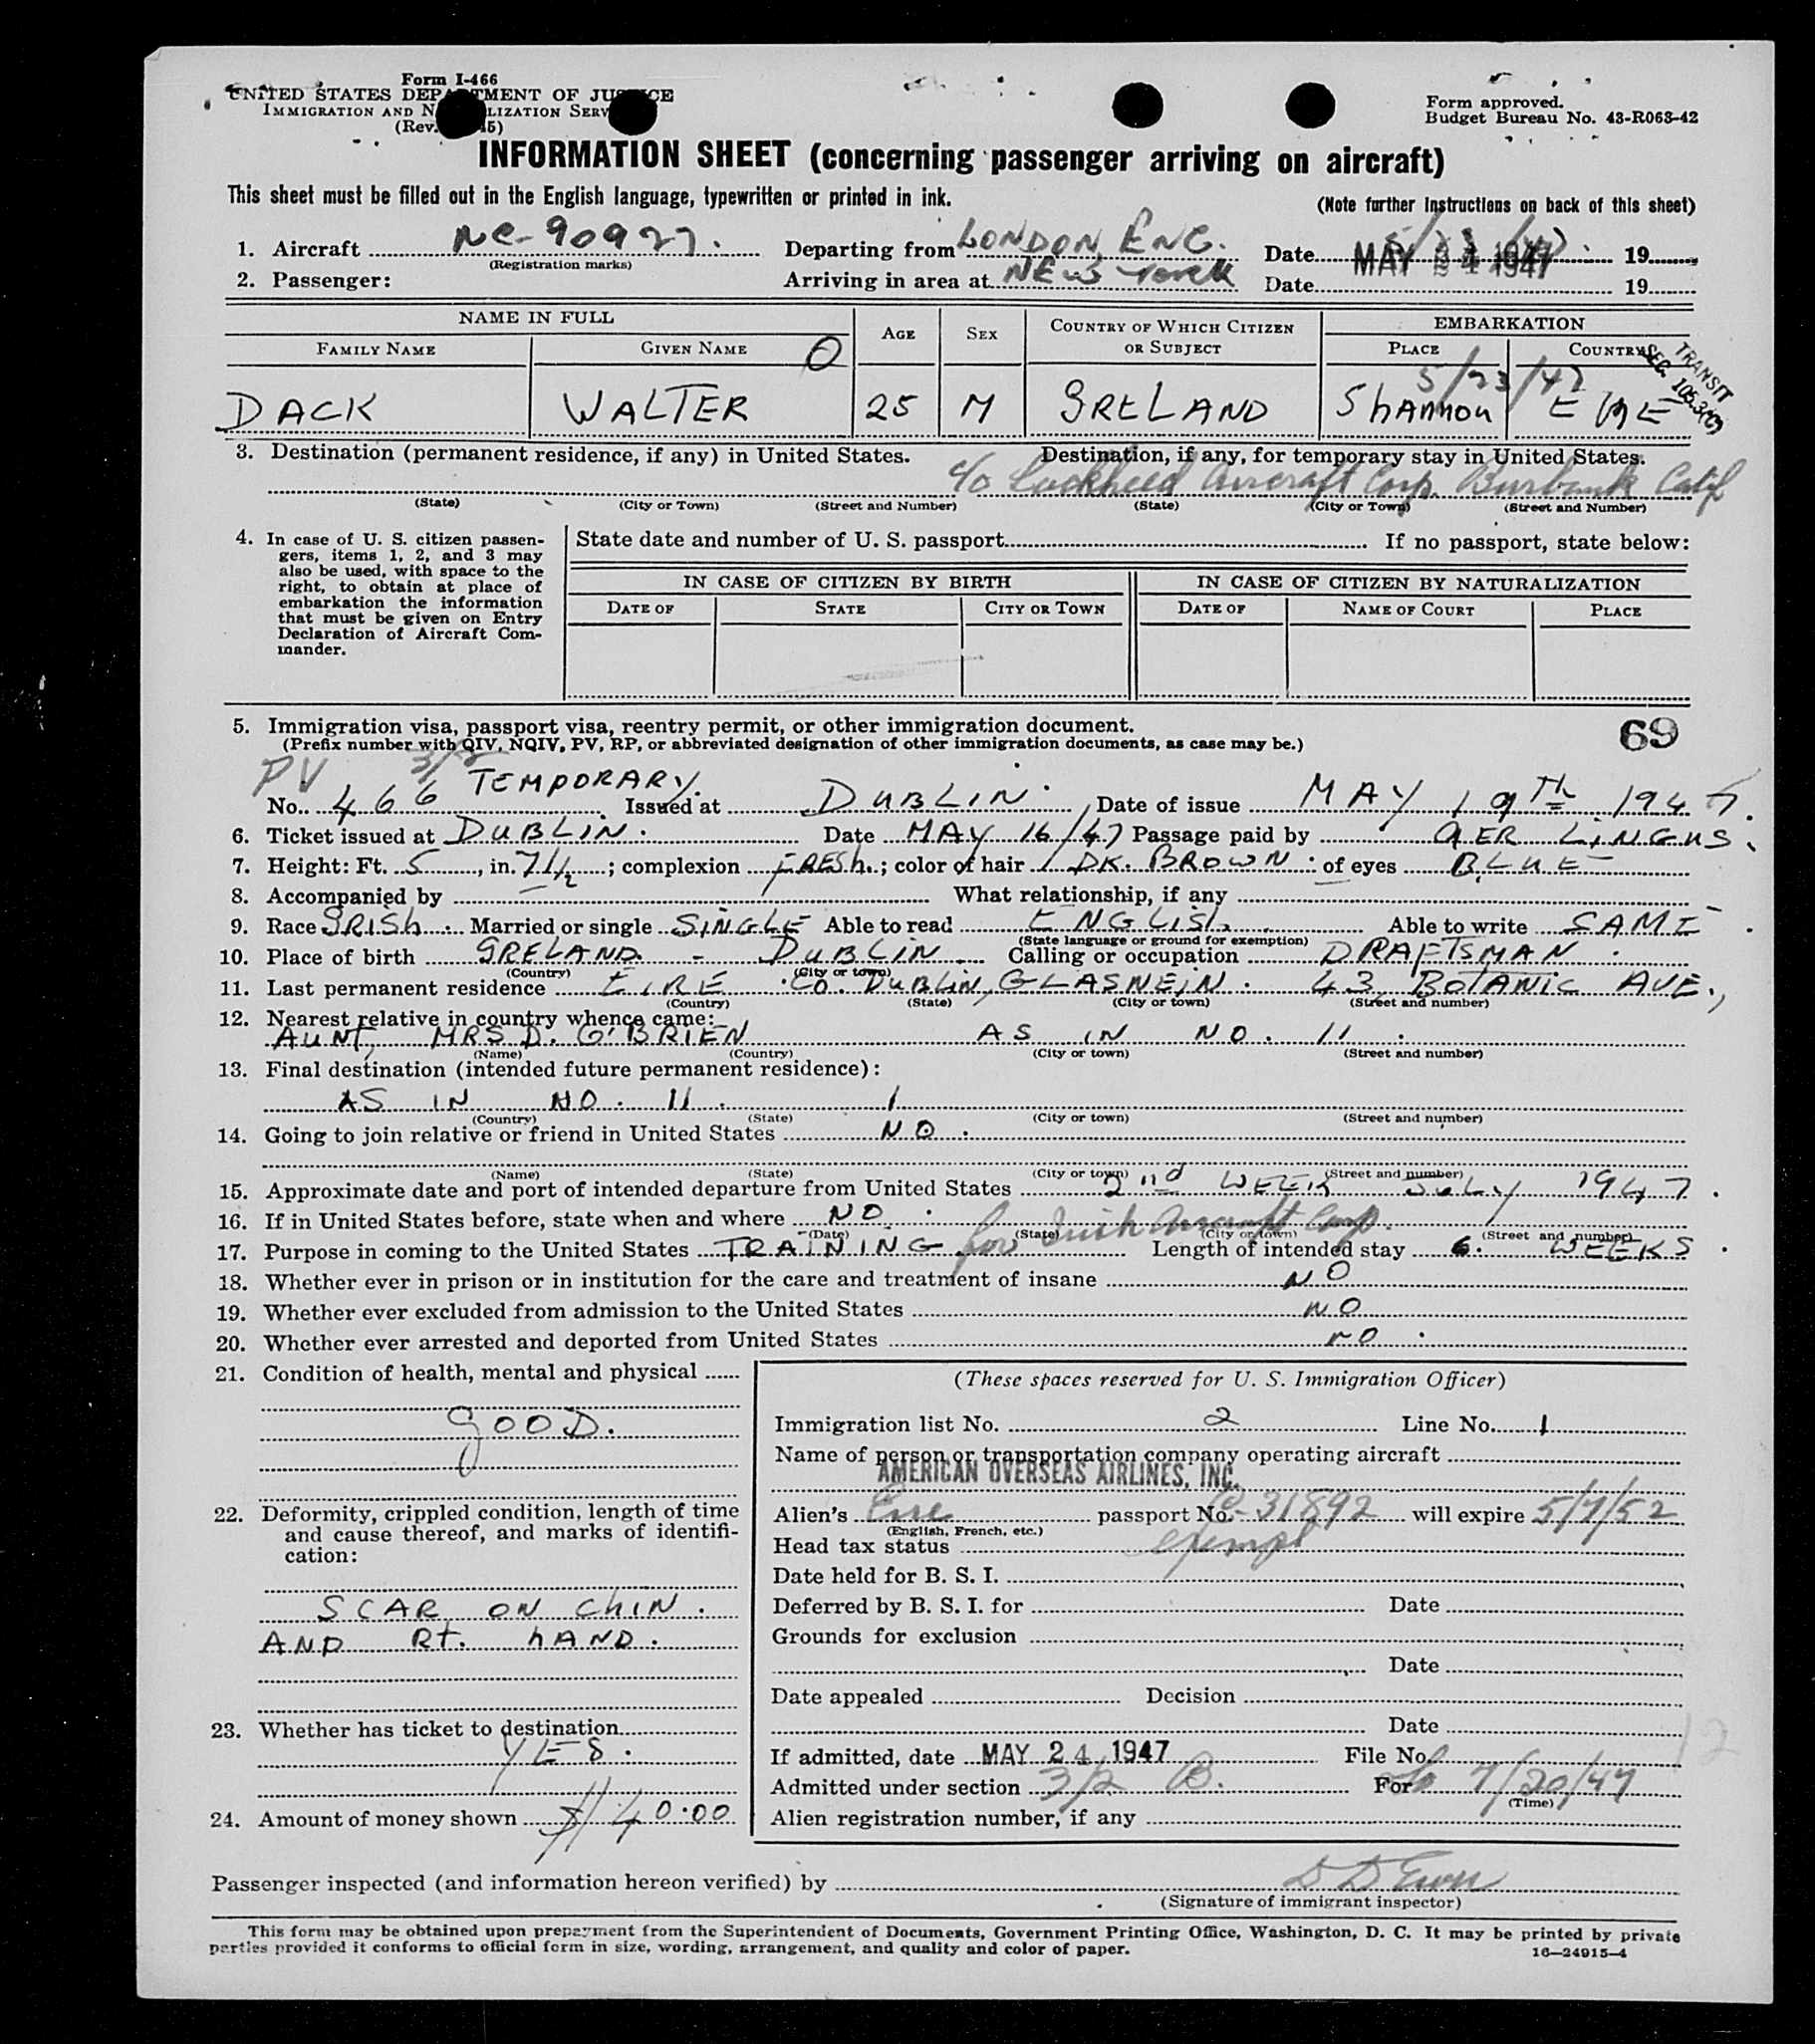 Form I-466
UNITED STATES DEPARTMENT OF JUSTICE
IMMIGRATION AND NATURALIZATION SERV
(Rev. 5)
Form approved.
Budget Bureau No. 43-R063-42
INFORMATION SHEET (concerning passenger arriving on aircraft)
This sheet must be filled out in the English language, typewritten or printed in ink.
(Note further instructions on back of this sheet)
1. Aircraft NC-90927. Departing from LONDON, ENG. Date MAY 1947 19
(Registration marks)
2. Passenger: Arriving in area at NEW York Date 19
NAME IN FULL AGE SEX COUNTRY OF WHICH CITIZEN OR SUBJECT EMBARKATION
FAMILY NAME GIVEN NAME O PLACE COUNTRY
TRANSIT
SEC. 105.3(2)
5/23/47
DACK WALTER 25 M IRELAND Shannon EIRE
3. Destination (permanent residence, if any) in United States. Destination, if any, for temporary stay in United States.
c/o Lockheed Aircraft Corp. Burbank Calif
(State) (City or Town) (Street and Number) (State) (City or Town) (Street and Number)
4. In case of U. S. citizen passengers, items 1, 2, and 3 may also be used, with space to the right, to obtain at place of embarkation the information that must be given on Entry Declaration of Aircraft Commander.
State date and number of U. S. passport If no passport, state below:
IN CASE OF CITIZEN BY BIRTH IN CASE OF CITIZEN BY NATURALIZATION
DATE OF STATE CITY OR TOWN DATE OF NAME OF COURT PLACE
5. Immigration visa, passport visa, reentry permit, or other immigration document. 69
(Prefix number with QIV, NQIV, PV, RP, or abbreviated designation of other immigration documents, as case may be.)
PV 3/2 TEMPORARY.
No. 466 Issued at DUBLIN. Date of issue MAY 19th 1947.
6. Ticket issued at DUBLIN. Date MAY 16/47 Passage paid by AER LINGUS.
7. Height: Ft. 5, in. 7 1/2; complexion FRESH.; color of hair DK. BROWN: of eyes BLUE
8. Accompanied by What relationship, if any
9. Race IRISH. Married or single SINGLE Able to read ENGLISH. Able to write SAME.
(State language or ground for exemption)
10. Place of birth IRELAND - DUBLIN Calling or occupation DRAFTSMAN.
(Country) (City or town)
11. Last permanent residence EIRE Co. DUBLIN, GLASNEIN. 43 BOTANIC AVE.,
(Country) (State) (City or town) (Street and number)
12. Nearest relative in country whence came:
AUNT, MRS D. O'BRIEN AS IN NO. 11.
(Name) (Country) (City or town) (Street and number)
13. Final destination (intended future permanent residence):
AS IN NO. 11.
(Country) (State) (City or town) (Street and number)
14. Going to join relative or friend in United States NO.
(Name) (State) (City or town) (Street and number)
15. Approximate date and port of intended departure from United States 2nd WEEK JULY 1947.
16. If in United States before, state when and where NO.
(Date) (State) (City or town) (Street and number)
17. Purpose in coming to the United States TRAINING for Irish Aircraft Corp. Length of intended stay 6. WEEKS.
18. Whether ever in prison or in institution for the care and treatment of insane NO
19. Whether ever excluded from admission to the United States NO
20. Whether ever arrested and deported from United States NO.
21. Condition of health, mental and physical
GOOD.
22. Deformity, crippled condition, length of time and cause thereof, and marks of identification:
SCAR ON CHIN.
AND RT. HAND.
23. Whether has ticket to destination
YES.
24. Amount of money shown $140.00
(These spaces reserved for U. S. Immigration Officer)
Immigration list No. 2 Line No. 1
Name of person or transportation company operating aircraft
AMERICAN OVERSEAS AIRLINES, INC.
Alien's Eire passport No. C-31892 will expire 5/7/52
(English, French, etc.)
Head tax status exempt
Date held for B. S. I.
Deferred by B. S. I. for Date
Grounds for exclusion
Date
Date appealed Decision
Date
If admitted, date MAY 24 1947 File No.
Admitted under section 3/2 B. For to 7/20/47
(Time)
Alien registration number, if any
Passenger inspected (and information hereon verified) by
(Signature of immigrant inspector)
This form may be obtained upon prepayment from the Superintendent of Documents, Government Printing Office, Washington, D. C. It may be printed by private
parties provided it conforms to official form in size, wording, arrangement, and quality and color of paper. 16—24915-4